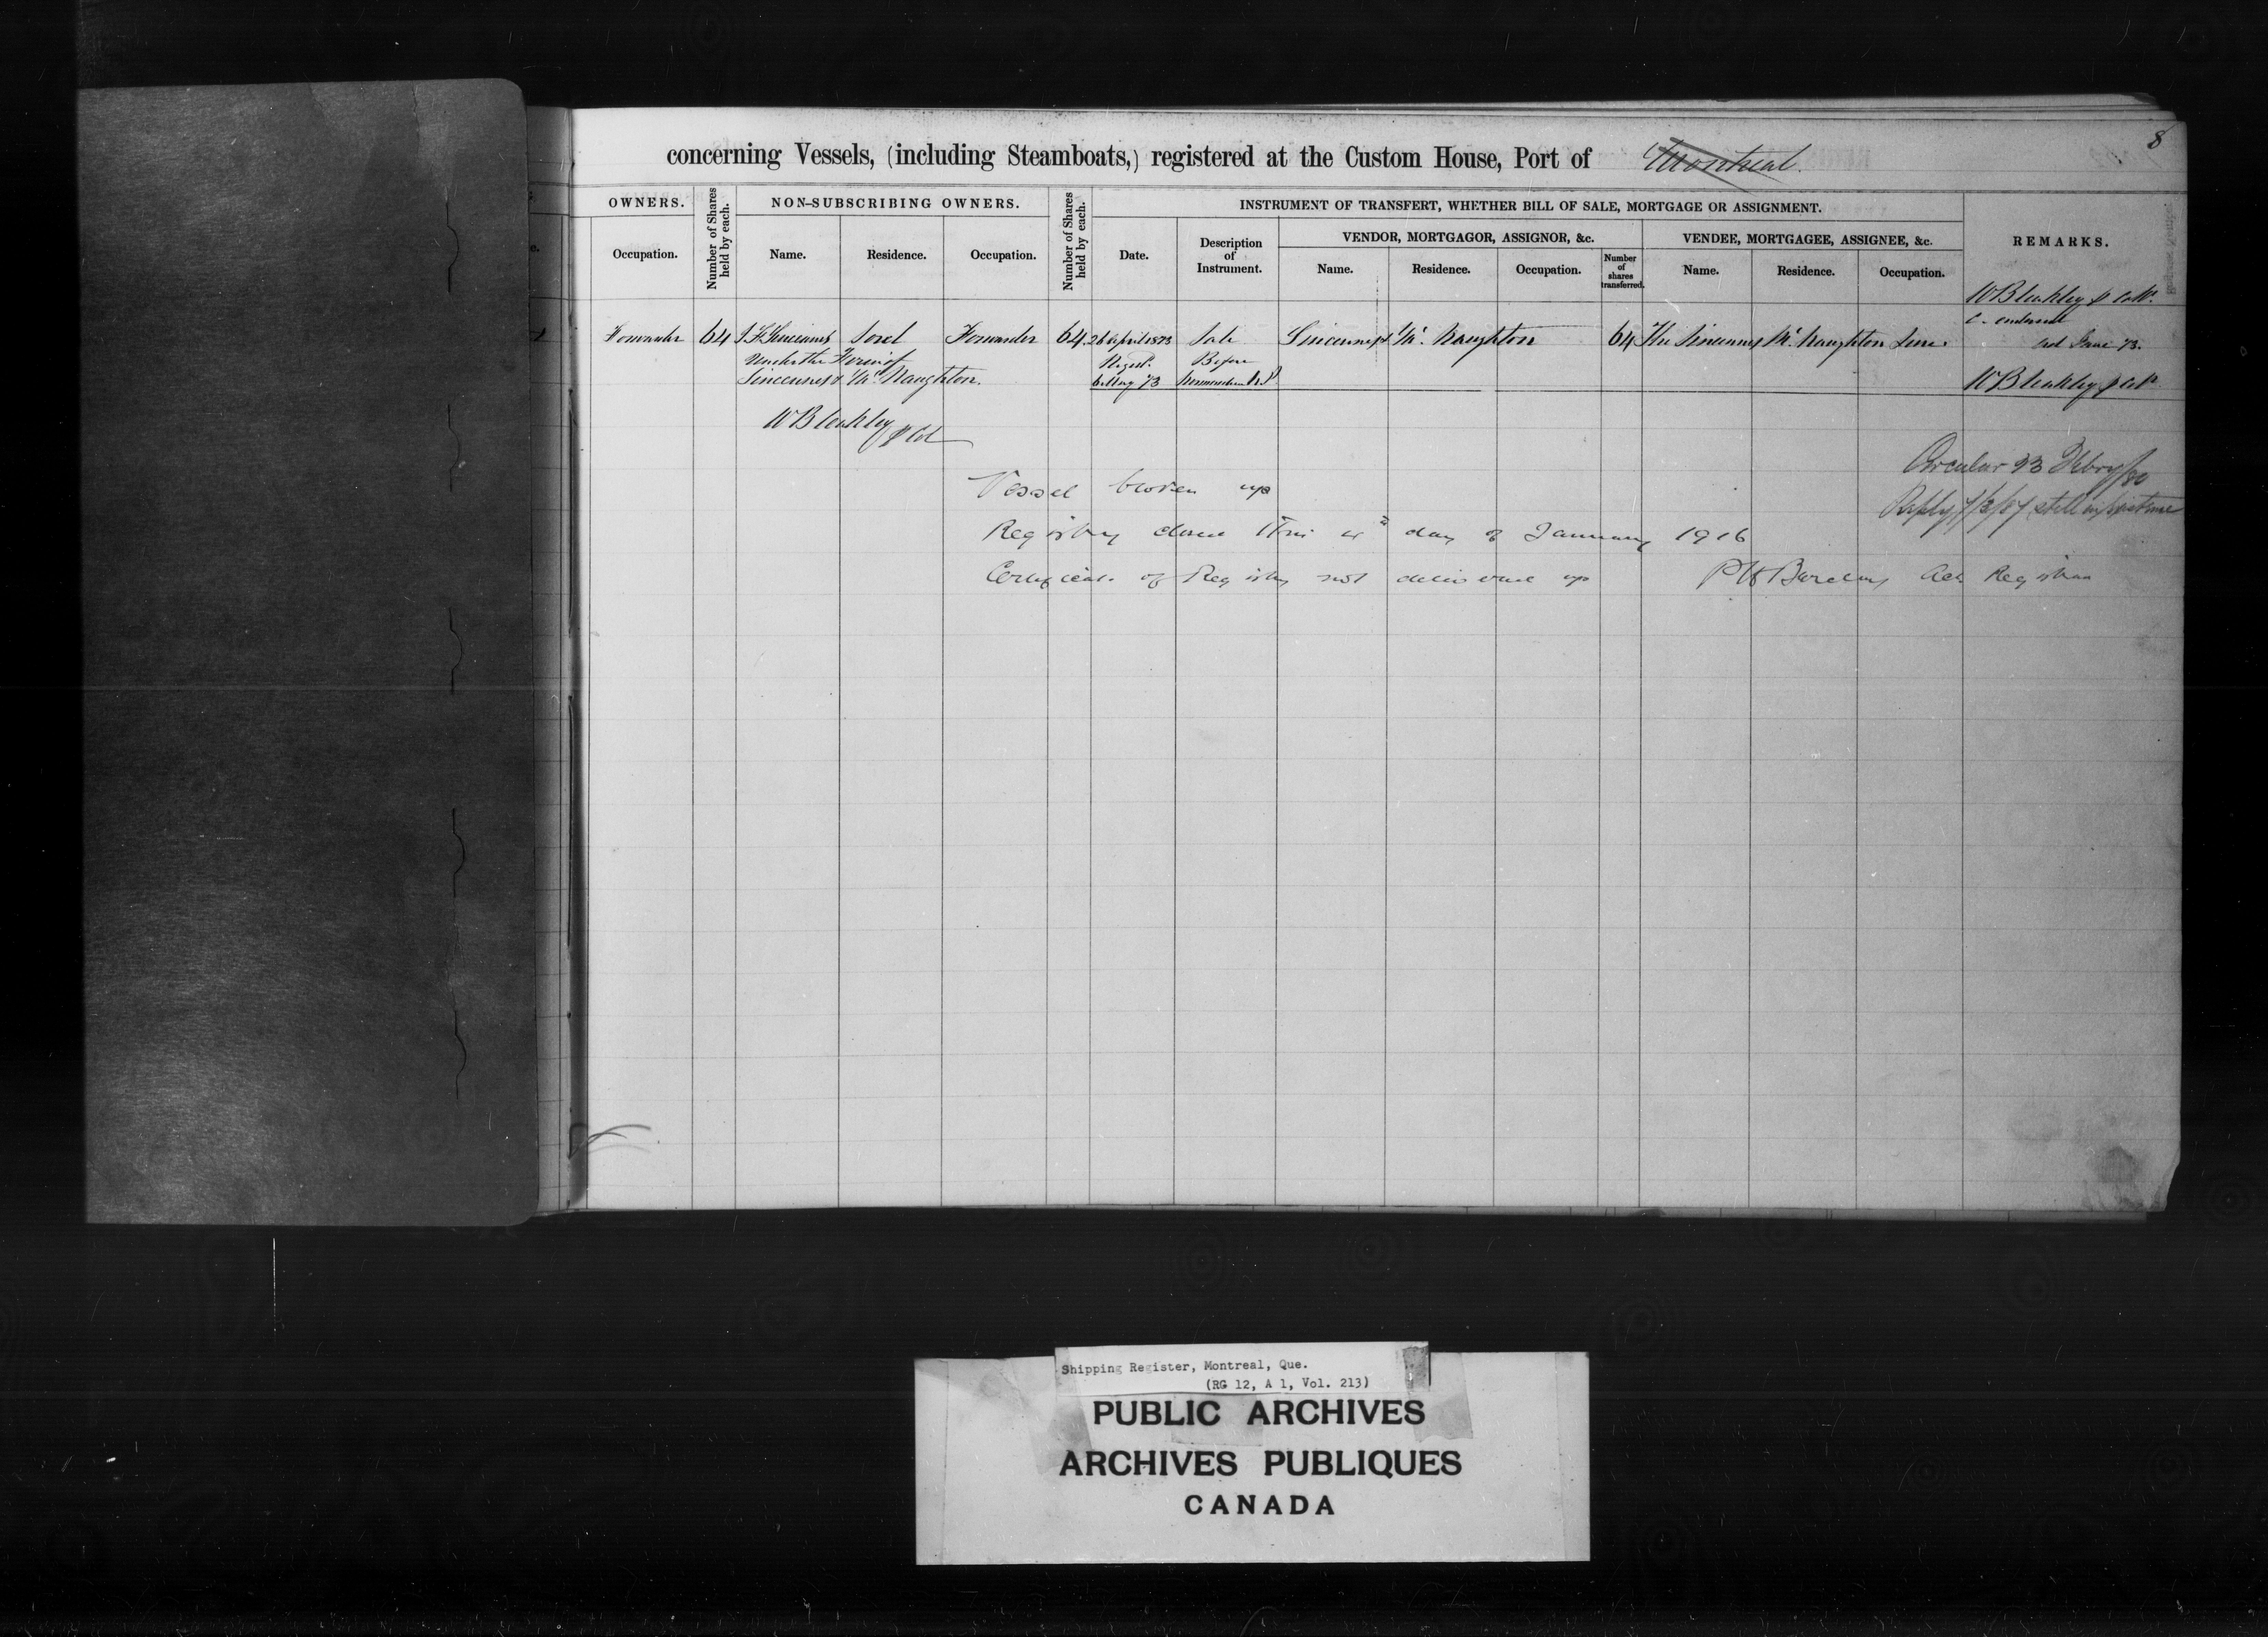 8
concerning Vessels, (including Steamboats,) registered at the Custom House, Port of Montreal.
OWNERS.
Number of Shares held by each.
NON-SUBSCRIBING OWNERS.
Number of Shares held by each.
INSTRUMENT OF TRANSFERT, WHETHER BILL OF SALE, MORTGAGE OR ASSIGNMENT.
REMARKS.
VENDOR, MORTGAGOR, ASSIGNOR, &c.
VENDEE, MORTGAGEE, ASSIGNEE, &c.
Occupation.
Name.
Residence.
Occupation.
Date.
Description of Instrument.
Name.
Residence.
Occupation.
Number of shares transferred.
Name.
Residence.
Occupation.
W Bleakley
Forwarder 64 Sincennes Sorel Forwarder 64. 26 April 1873 Sale Sincennes & Mc. Naughton 64 The Sincennes Mc. Naughton Line.
C. endorsed
3rd June 73.
under the Firm of
Regist. Before
Sincennes & Mc Naughton.
6 May 73
W Bleakley
W Bleakley
Circular 23 Febry/80
Vessel broken up
Reply still in existence
Registry closed this day of January 1916
Certificate of Registry not delivered up
Barclay Registrar
Shipping Register, Montreal, Que.
(RG 12, A 1, Vol. 213)
PUBLIC ARCHIVES
ARCHIVES PUBLIQUES
CANADA